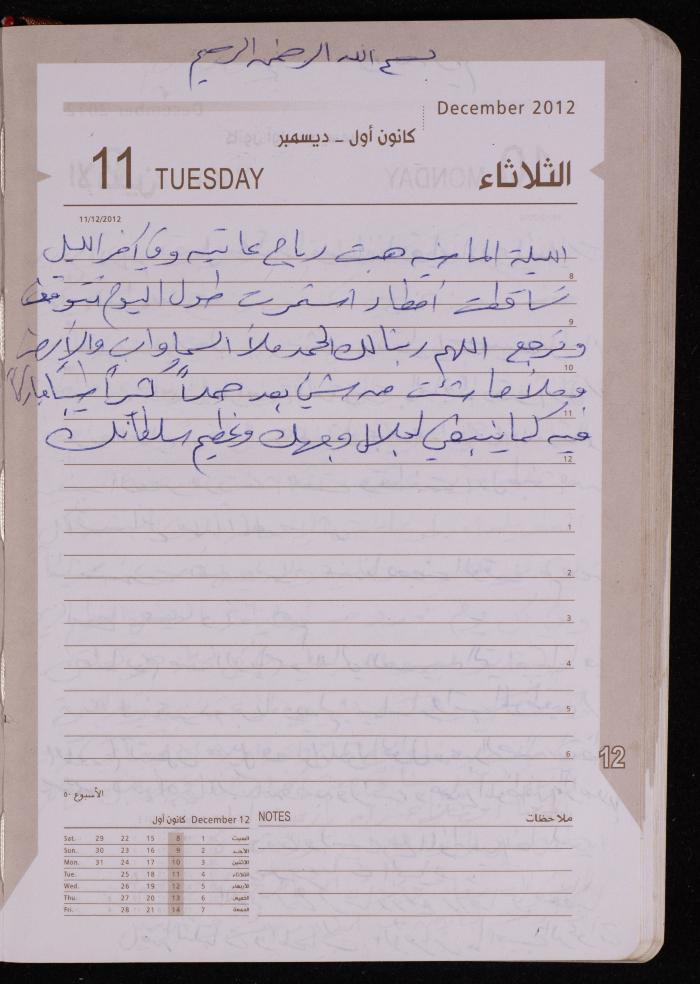 بسم الله الرحمن الرحيم
December 2012
كانون أول - ديسمبر
11 TUESDAY
الثلاثاء
11/12/2012
الليلة الماضيه هبت رياح عاتيه وفي آخر الليل
8
تساقطت أمطار استمرت طول اليوم تتوقف
9
وترجع اللهم ربنا لك الحمد ملأ السماوات والأرض
10
وملأ ما شئت من شيئ بعد حمداً كثيراً طيباً مباركاً
11
فيه كما ينبغي لجلال وجهك وعظيم سلطانك
12
1
2
3
4
5
6
12
الأسبوع ٥٠
كانون أول December 12
Sat. 29 22 15 8 1 السبت
Sun. 30 23 16 9 2 الأحد
Mon. 31 24 17 10 3 الاثنين
Tue. 25 18 11 4 الثلاثاء
Wed. 26 19 12 5 الأربعاء
Thu. 27 20 13 6 الخميس
Fri. 28 21 14 7 الجمعة
NOTES
ملاحظات